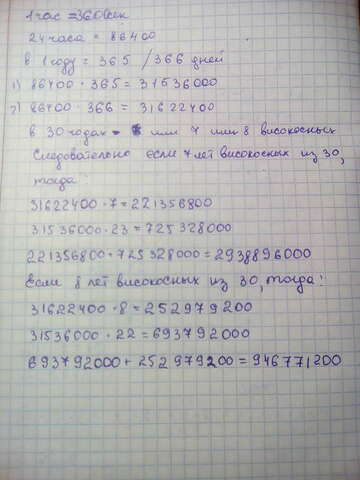 1 час = 3600 сек
24 часа = 86400
в 1 году = 365 / 366 дней
1) 86400 · 365 = 31536000
2) 86400 · 366 = 31622400
в 30 годах - или 7 или 8 високосных
Следовательно если 7 лет високосных из 30,
тогда:
31622400 · 7 = 221356800
31536000 · 23 = 725328000
221356800 + 725328000 = 2938896000
Если 8 лет високосных из 30, тогда:
31622400 · 8 = 252979200
31536000 · 22 = 693792000
693792000 + 252979200 = 946771200